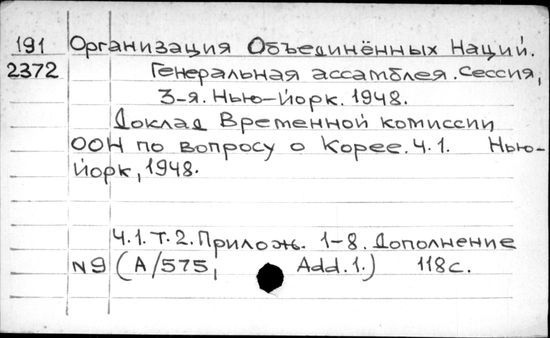 191 Организация Объединённых Наций.
2372 Генеральная ассамблея. Сессия,
3-я. Нью-Йорк. 1948.
Доклад Временной комиссии
ООН по вопросу о Корее. Ч.1. Нью-
Йорк, 1948.
Ч.1. Т.2. Прилож. 1-8. Дополнение
N9 (A/575, Add.1.) 118с.